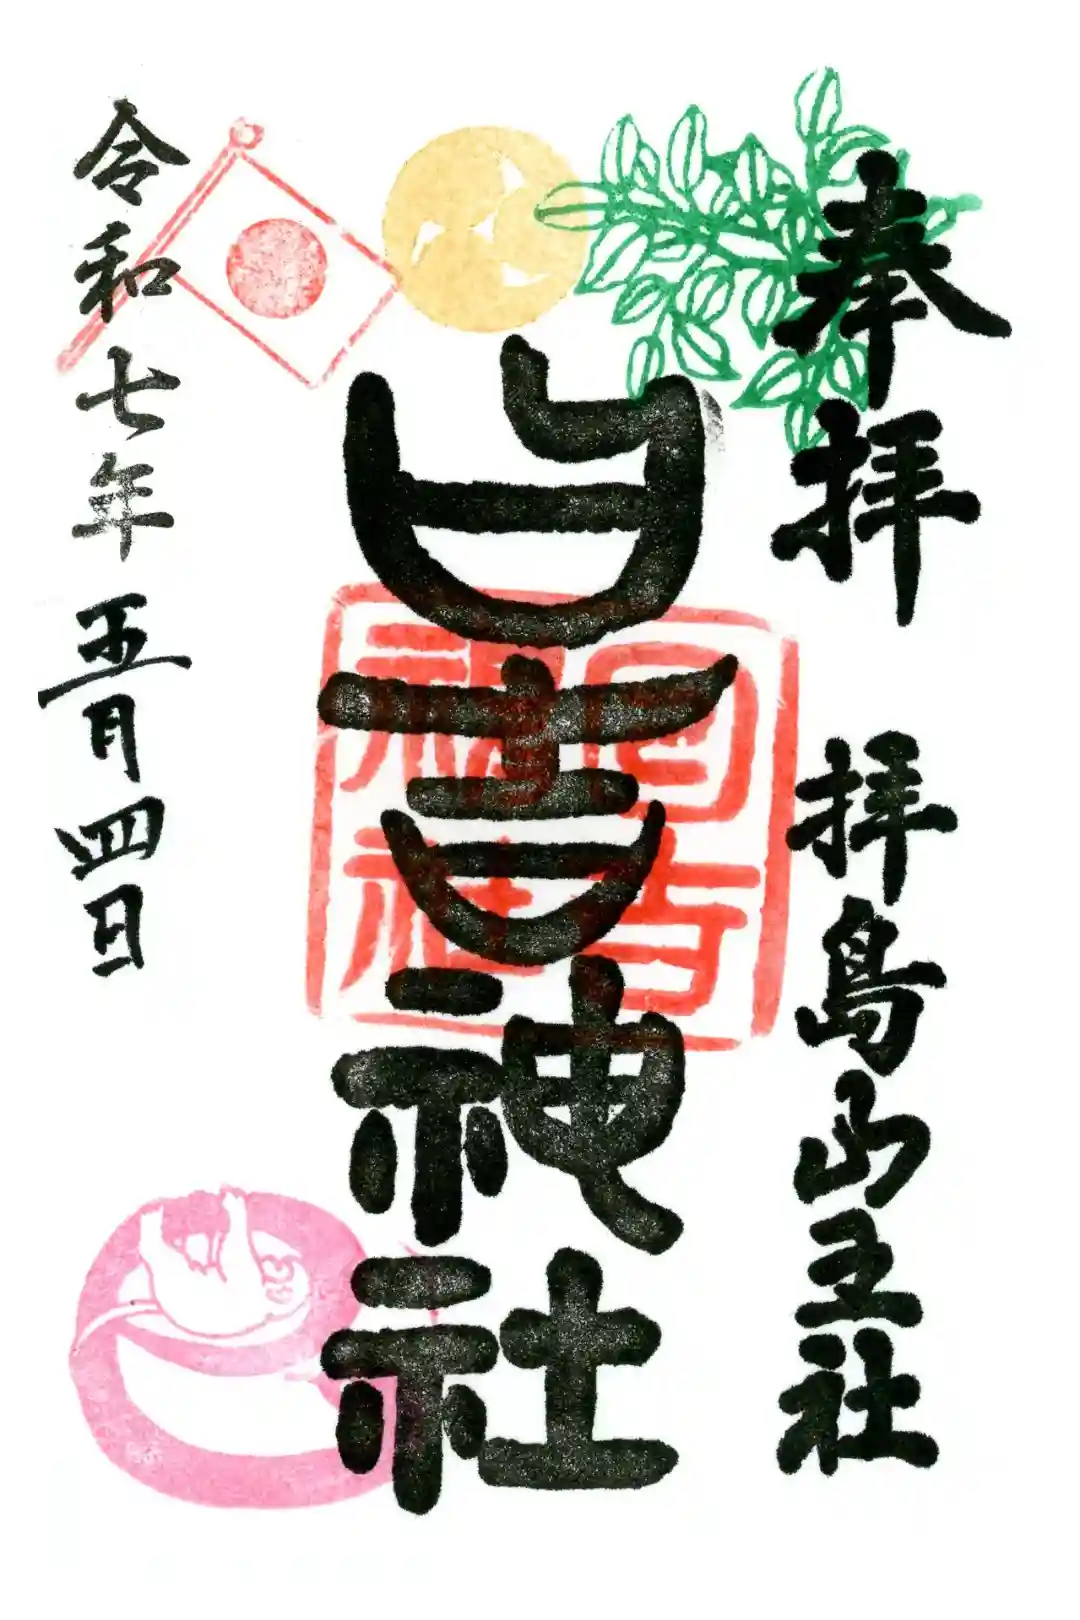 奉拝 拝島山王社
日吉神社
日吉神社
令和七年五月四日